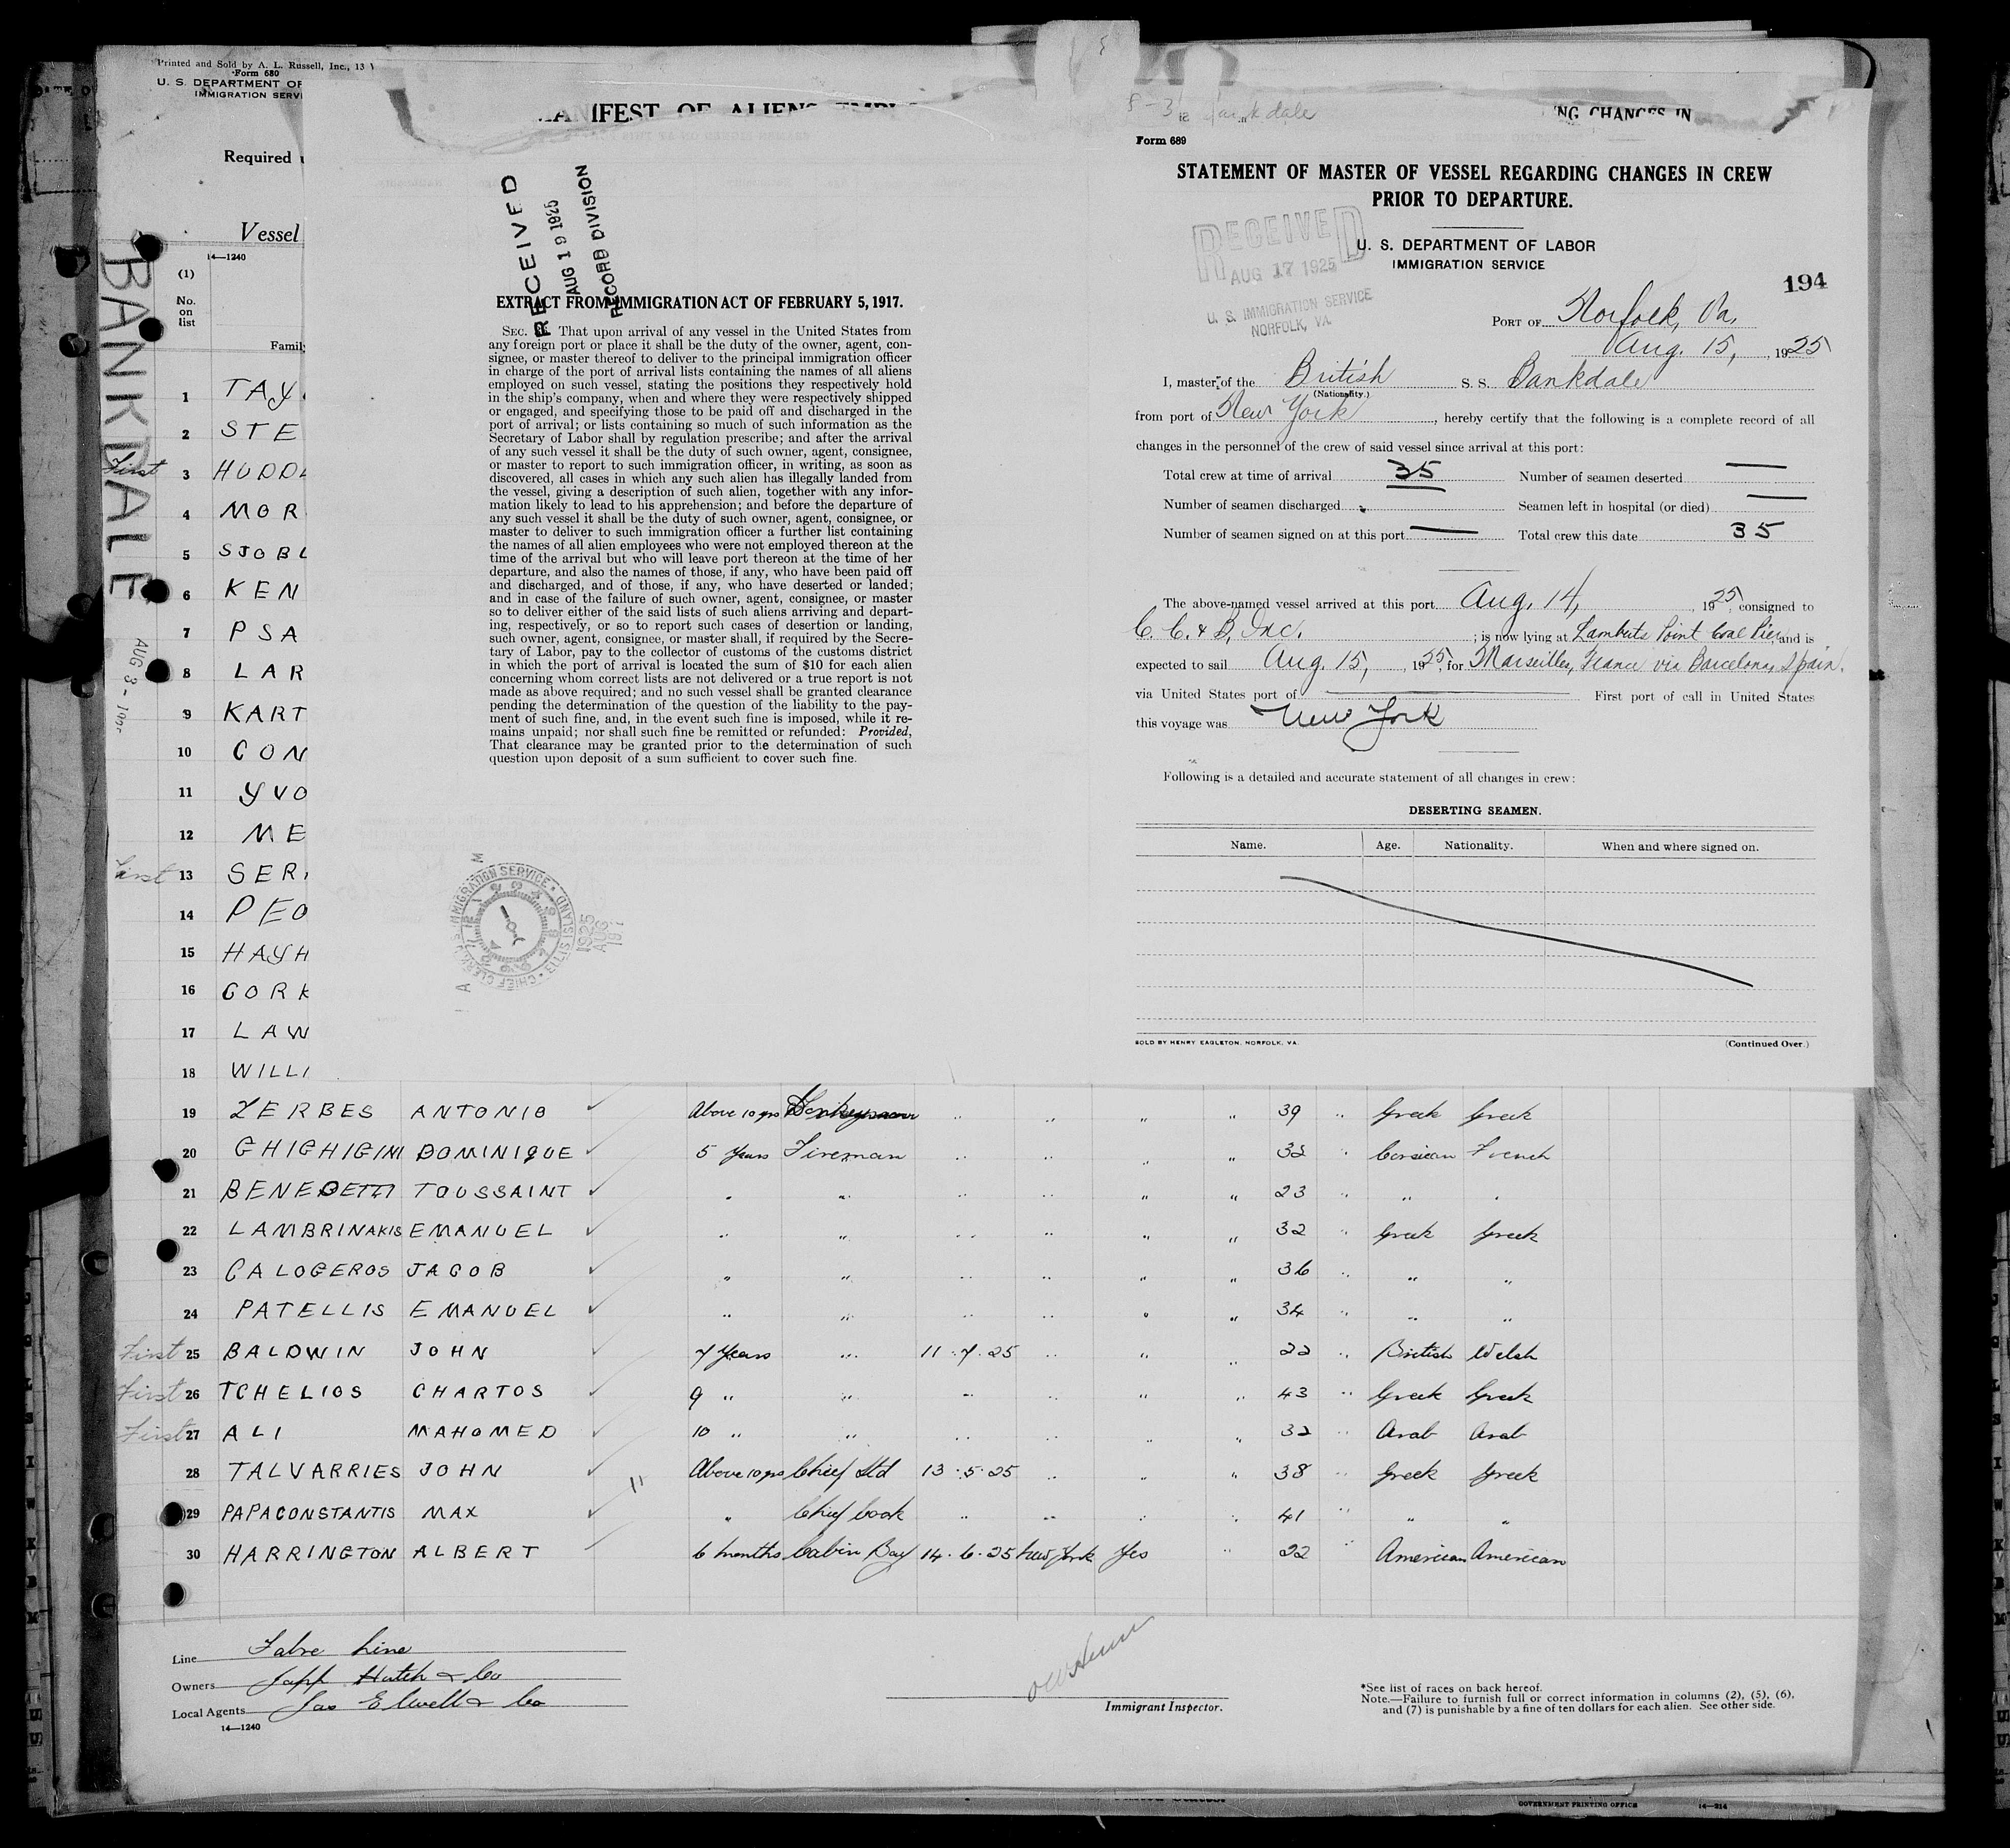 Printed and Sold by A. L. Russell, Inc., 13
Form 680
U. S. DEPARTMENT OF
IMMIGRATION SERVI
Required
Vessel
14—1240
(1)
No.
on
list
Famil
BANKDALE
AUG 3 -
1 TAY
2 STE
First 3 HUDDL
4 MOR
5 SJOBL
6 KEN
7 PSA
8 LAR
9 KART
10 CON
11 YVO
12 ME
First 13 SER
14 PEO
15 HAYH
16 CORK
17 LAW
18 WILLI
MANIFEST OF ALIENS EMPL
RECEIVED
AUG 19 1925
RECORD DIVISION
EXTRACT FROM IMMIGRATION ACT OF FEBRUARY 5, 1917.
SEC. That upon arrival of any vessel in the United States from
any foreign port or place it shall be the duty of the owner, agent, con-
signee, or master thereof to deliver to the principal immigration officer
in charge of the port of arrival lists containing the names of all aliens
employed on such vessel, stating the positions they respectively hold
in the ship's company, when and where they were respectively shipped
or engaged, and specifying those to be paid off and discharged in the
port of arrival; or lists containing so much of such information as the
Secretary of Labor shall by regulation prescribe; and after the arrival
of any such vessel it shall be the duty of such owner, agent, consignee,
or master to report to such immigration officer, in writing, as soon as
discovered, all cases in which any such alien has illegally landed from
the vessel, giving a description of such alien, together with any infor-
mation likely to lead to his apprehension; and before the departure of
any such vessel it shall be the duty of such owner, agent, consignee, or
master to deliver to such immigration officer a further list containing
the names of all alien employees who were not employed thereon at the
time of the arrival but who will leave port thereon at the time of her
departure, and also the names of those, if any, who have been paid off
and discharged, and of those, if any, who have deserted or landed;
and in case of the failure of such owner, agent, consignee, or master
so to deliver either of the said lists of such aliens arriving and depart-
ing, respectively, or so to report such cases of desertion or landing,
such owner, agent, consignee, or master shall, if required by the Secre-
tary of Labor, pay to the collector of customs of the customs district
in which the port of arrival is located the sum of $10 for each alien
concerning whom correct lists are not delivered or a true report is not
made as above required; and no such vessel shall be granted clearance
pending the determination of the question of the liability to the pay-
ment of such fine, and, in the event such fine is imposed, while it re-
mains unpaid; nor shall such fine be remitted or refunded: Provided,
That clearance may be granted prior to the determination of such
question upon deposit of a sum sufficient to cover such fine.
IMMIGRATION SERVICE · ELLIS ISLAND · CHIEF CLERK
1925
AUG
Bankdale
NG CHANGES IN
Form 689
STATEMENT OF MASTER OF VESSEL REGARDING CHANGES IN CREW
PRIOR TO DEPARTURE.
RECEIVED
AUG 17 1925
U. S. IMMIGRATION SERVICE
NORFOLK, VA.
U. S. DEPARTMENT OF LABOR
IMMIGRATION SERVICE
194
PORT OF Norfolk, Va.
Aug. 15, 1925
I, master of the British S. S. Bankdale
(Nationality.)
from port of New York, hereby certify that the following is a complete record of all
changes in the personnel of the crew of said vessel since arrival at this port:
Total crew at time of arrival 35 Number of seamen deserted —
Number of seamen discharged Seamen left in hospital (or died) —
Number of seamen signed on at this port — Total crew this date 35
The above-named vessel arrived at this port Aug. 14, 1925, consigned to
C. C. & B, Inc.; is now lying at Lamberts Point Coal Pier, and is
expected to sail Aug. 15, 1925, for Marseilles, France via Barcelona, Spain.
via United States port of — First port of call in United States
this voyage was New York
Following is a detailed and accurate statement of all changes in crew:
DESERTING SEAMEN.
Name. Age. Nationality. When and where signed on.
SOLD BY HENRY EAGLETON, NORFOLK, VA. (Continued Over.)
19 ZERBES ANTONIO Above 10 yrs Donkeyman " " " " 39 " Greek Greek
20 GHIGHIGINI DOMINIQUE 5 Years Fireman " " " " 32 " Corsican French
21 BENEDETTI TOUSSAINT " " " " " " 23 " " "
22 LAMBRINAKIS EMANUEL " " " " " " 32 " Greek Greek
23 CALOGEROS JACOB " " " " " " 36 " " "
24 PATELLIS EMANUEL " " " " " " 34 " " "
First 25 BALDWIN JOHN 7 Years " 11.7.25 " " " 22 " British Welsh
First 26 TCHELIOS CHARTOS 9 " " " " " " 43 " Greek Greek
First 27 ALI MAHOMED 10 " " " " " " 32 " Arab Arab
28 TALVARRIES JOHN Above 10 yrs Chief Std 13.5.25 " " " 38 " Greek Greek
29 PAPACONSTANTIS MAX " Chief Cook " " " " 41 " " "
30 HARRINGTON ALBERT 6 months Cabin Boy 14.6.25 New York Yes " 22 " American American
Line Fabre Line
Owners Japp Hatch & Co
Local Agents Jas Elwell & Co
14—1240
Immigrant Inspector.
*See list of races on back hereof.
Note.—Failure to furnish full or correct information in columns (2), (5), (6),
and (7) is punishable by a fine of ten dollars for each alien. See other side.
GOVERNMENT PRINTING OFFICE 14—214